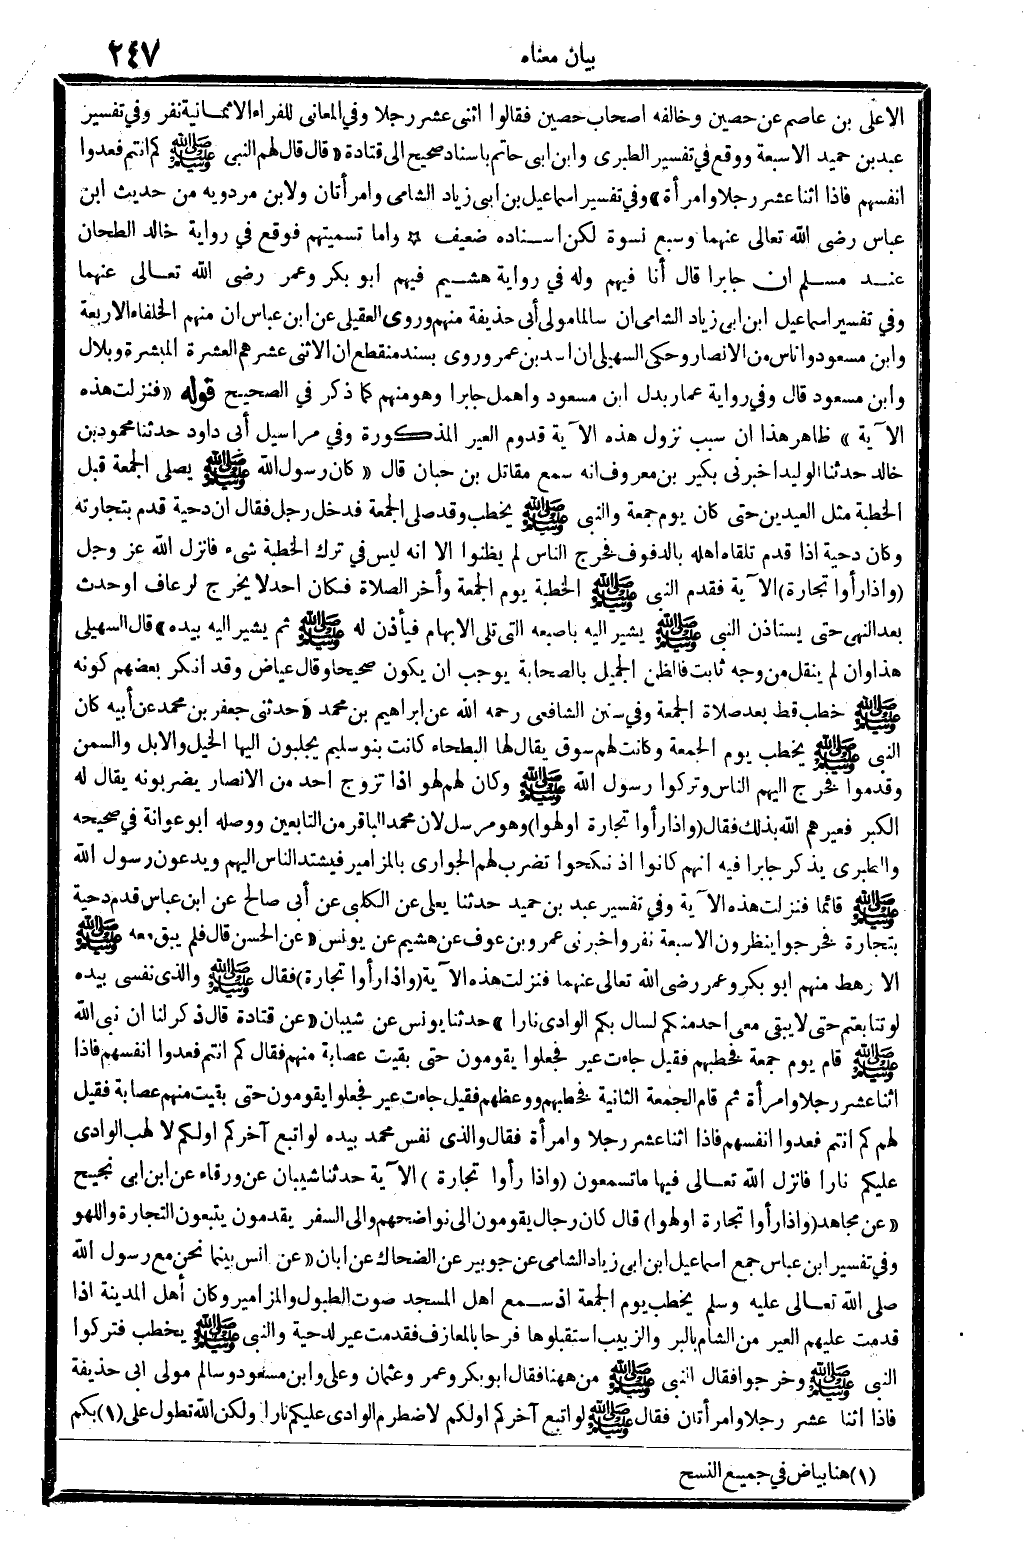 بيان معناه ٢٤٧
الاعلى بن عاصم عن حصين وخالفه اصحاب حصين فقالوا اثنى عشر رجلا وفي المعانى للفراء الاثمانية نفر وفي تفسير
عبد بن حميد الاسبعة ووقع في تفسير الطبرى وابن ابى حاتم باسناد صحيح الى قتادة « قال قال لهم النبى ﷺ كم انتم فعدوا
انفسهم فاذا اثنا عشر رجلا وامرأة » وفي تفسير اسماعيل بن ابى زياد الشامى وامرأتان ولابن مردويه من حديث ابن
عباس رضى الله تعالى عنهما وسبع نسوة لكن اسناده ضعيف ☆ واما تسميتهم فوقع في رواية خالد الطحان
عند مسلم ان جابرا قال أنا فيهم وله في رواية هشيم فيهم ابو بكر وعمر رضى الله تعالى عنهما
وفي تفسير اسماعيل ابن ابى زياد الشامى ان سالما مولى أبى حذيفة منهم وروى العقيلى عن ابن عباس ان منهم الخلفاء الاربعة
وابن مسعود واناس من الانصار وحكى السهيلى ان اسد بن عمر وروى بسند منقطع ان الاثنى عشر هم العشرة المبشرة وبلال
وابن مسعود قال وفي رواية عمار بدل ابن مسعود واهمل جابرا وهو منهم كما ذكر في الصحيح قوله « فنزلت هذه
الآية » ظاهر هذا ان سبب نزول هذه الآية قدوم العير المذكورة وفي مراسيل أبى داود حدثنا محمود بن
خالد حدثنا الوليد اخبرنى بكير بن معروف انه سمع مقاتل بن حبان قال « كان رسول الله ﷺ يصلى الجمعة قبل
الخطبة مثل العيدين حتى كان يوم جمعة والنبى ﷺ يخطب وقد صلى الجمعة فدخل رجل فقال ان دحية قدم بتجارته
وكان دحية اذا قدم تلقاه اهله بالدفوف فخرج الناس لم يظنوا الا انه ليس في ترك الخطبة شىء فانزل الله عز وجل
(واذا رأوا تجارة) الآية فقدم النبى ﷺ الخطبة يوم الجمعة وأخر الصلاة فكان احد لا يخرج لرعاف او حدث
بعد النهى حتى يستاذن النبى ﷺ يشير اليه باصبعه التى تلى الابهام فيأذن له ﷺ ثم يشير اليه بيده » قال السهيلى
هذا وان لم ينقل من وجه ثابت فالظن الجميل بالصحابة يوجب ان يكون صحيحا وقال عياض وقد انكر بعضهم كونه
ﷺ خطب قط بعد صلاة الجمعة وفي سنن الشافعى رحمه الله عن ابراهيم بن محمد « حدثنى جعفر بن محمد عن أبيه كان
النبى ﷺ يخطب يوم الجمعة وكانت لهم سوق يقال لها البطحاء كانت بنو سليم يجلبون اليها الخيل والابل والسمن
وقدموا فخرج اليهم الناس وتركوا رسول الله ﷺ وكان لهم لهو اذا تزوج احد من الانصار يضربونه يقال له
الكبر فعيرهم الله بذلك فقال (واذا رأوا تجارة اولهوا) وهو مرسل لان محمد الباقر من التابعين ووصله ابو عوانة في صحيحه
والطبرى يذكر جابرا فيه انهم كانوا اذ نكحوا تضرب لهم الجوارى بالمزامير فيشتد الناس اليهم ويدعون رسول الله
ﷺ قائما فنزلت هذه الآية وفي تفسير عبد بن حميد حدثنا يعلى عن الكلبى عن أبى صالح عن ابن عباس قدم دحية
بتجارة فخرجوا ينظرون الاسبعة نفر واخبرنى عمرو بن عوف عن هشيم عن يونس « عن الحسن قال فلم يبق معه ﷺ
الا رهط منهم ابو بكر وعمر رضى الله تعالى عنهما فنزلت هذه الآية (واذا رأوا تجارة) فقال ﷺ والذى نفسى بيده
لو تتابعتم حتى لا يبقى معى احد منكم لسال بكم الوادى نارا » حدثنا يونس عن شيبان « عن قتادة قال ذكر لنا ان نبى الله
ﷺ قام يوم جمعة فخطبهم فقيل جاءت عير فجعلوا يقومون حتى بقيت عصابة منهم فقال كم انتم فعدوا انفسهم فاذا
اثنا عشر رجلا وامرأة ثم قام الجمعة الثانية فخطبهم ووعظهم فقيل جاءت عير فجعلوا يقومون حتى بقيت منهم عصابة فقيل
لهم كم انتم فعدوا انفسهم فاذا اثنا عشر رجلا وامرأة فقال والذى نفس محمد بيده لو اتبع آخركم اولكم لالهب الوادى
عليكم نارا فانزل الله تعالى فيها ما تسمعون (واذا رأوا تجارة) الآية حدثنا شيبان عن ورقاء عن ابن ابى نجيح
« عن مجاهد (واذا رأوا تجارة اولهوا) قال كان رجال يقومون الى نواضحهم والى السفر يقدمون يتبعون التجارة واللهو
وفي تفسير ابن عباس جمع اسماعيل ابن ابى زياد الشامى عن جويبر عن الضحاك عن ابان « عن انس بينما نحن مع رسول الله
صلى الله تعالى عليه وسلم يخطب يوم الجمعة اذ سمع اهل المسجد صوت الطبول والمزامير وكان أهل المدينة اذا
قدمت عليهم العير من الشام بالبر والزبيب استقبلوها فرحا بالمعازف فقدمت عير لدحية والنبى ﷺ يخطب فتركوا
النبى ﷺ وخرجوا فقال النبى ﷺ من ههنا فقال ابو بكر وعمر وعثمان وعلى وابن مسعود وسالم مولى ابى حذيفة
فاذا اثنا عشر رجلا وامرأتان فقال ﷺ لو اتبع آخركم اولكم لاضطرم الوادى عليكم نارا ولكن الله تطول على (١) بكم
(١) هنا بياض في جميع النسخ